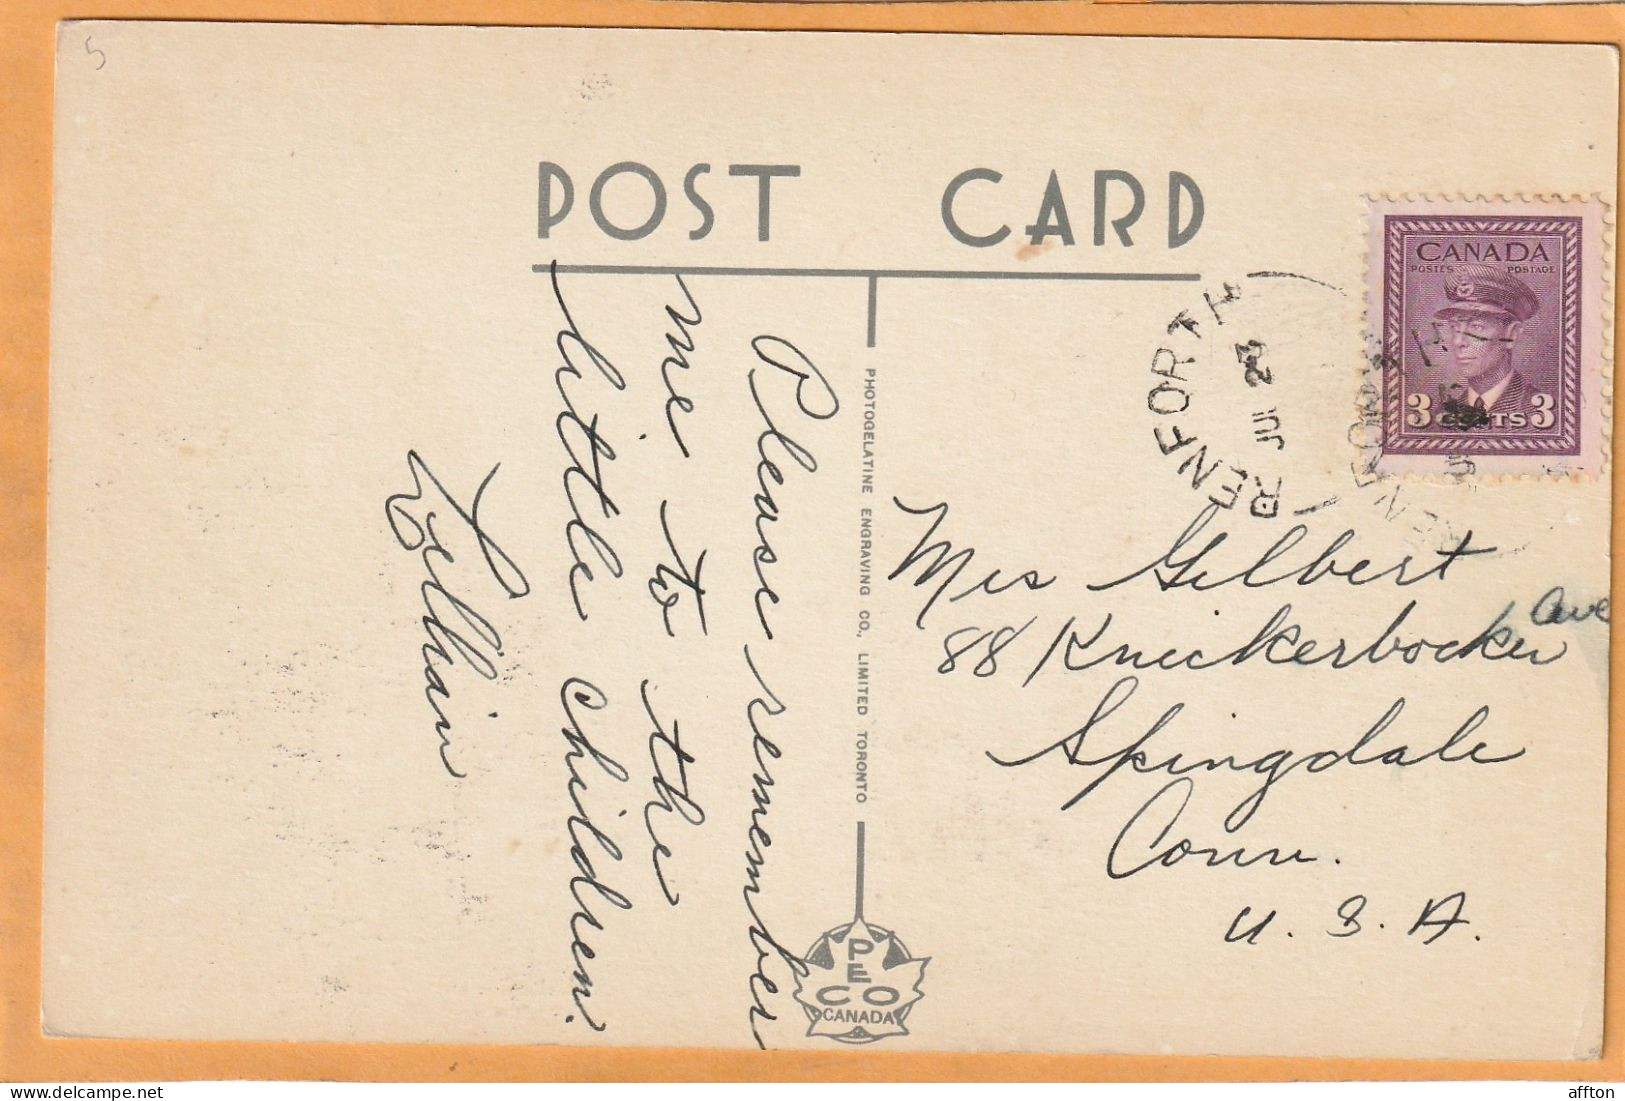 5
POST CARD
CANADA
POSTES POSTAGE
3 CENTS 3
RENFORTH
JUL 23
Please remember
me to the
little children.
Lillian
PHOTOGELATINE ENGRAVING CO., LIMITED TORONTO
Mrs Gilbert
88 Knickerbocker Ave
Springdale
Conn.
U. S. A.
PECO
CANADA
affton